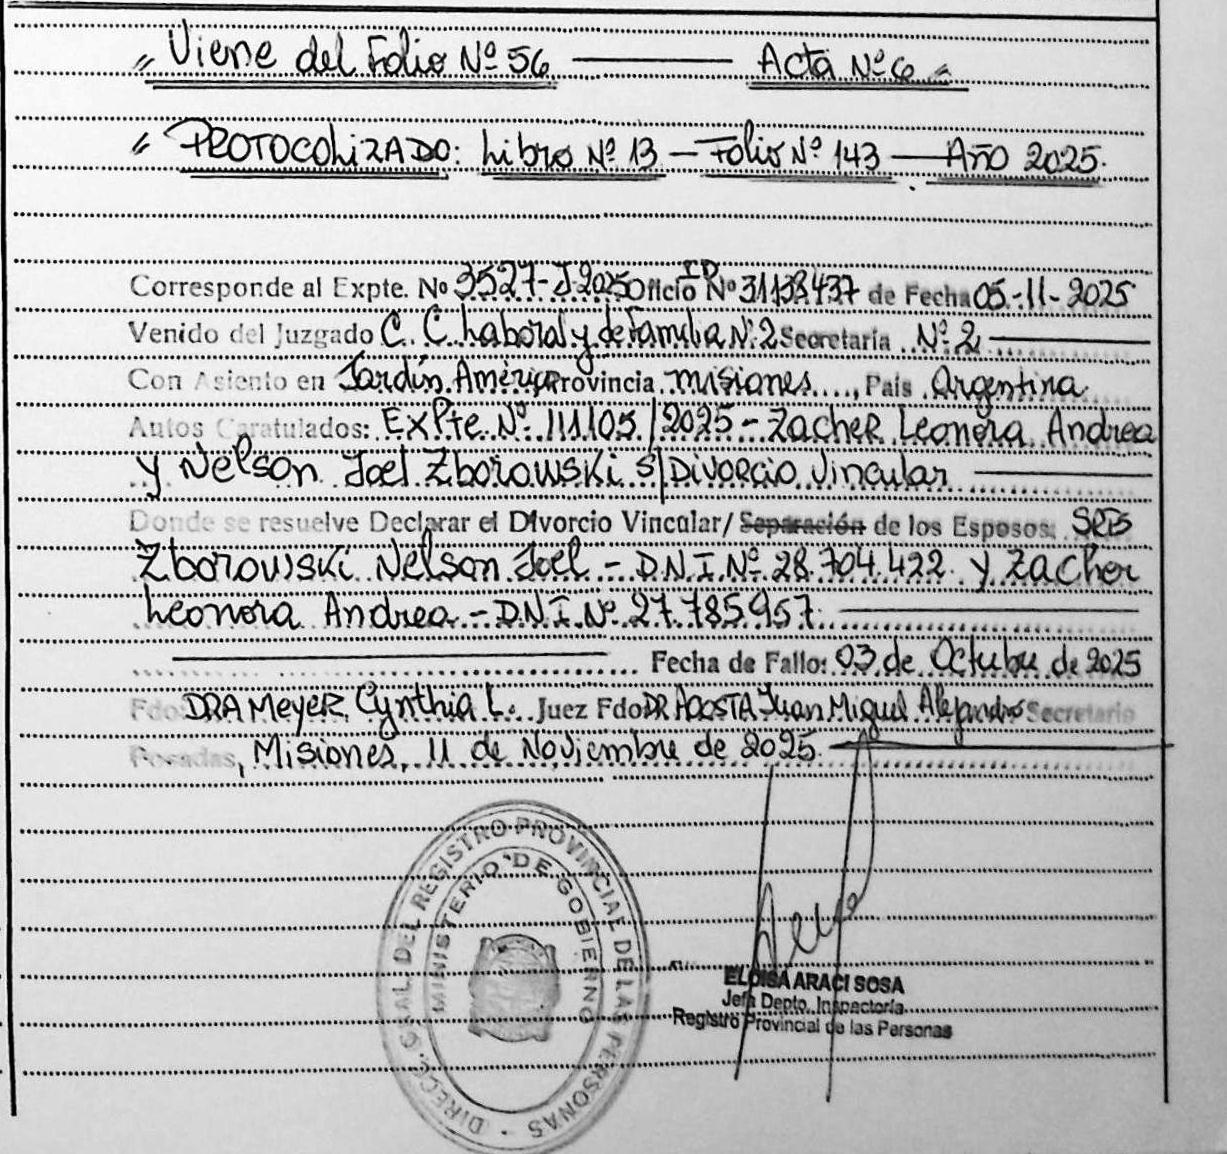 " Viene del Folio Nº 56 ——— Acta Nº 6 "
" PROTOCOLIZADO: Libro Nº 13 — Folio Nº 143 — Año 2025.
Corresponde al Expte. Nº 3527-J-2025 Oficio ID Nº 31138437 de Fecha 05-11-2025
Venido del Juzgado C. C. Laboral y de Familia Nº 2 Secretaría Nº 2
Con Asiento en Jardín América, Provincia misiones, País Argentina.
Autos Caratulados: ExPte. Nº 111105/2025 - Zacher Leonora Andrea
y Nelson Joel Zborowski S/Divorcio Vincular
Donde se resuelve Declarar el Divorcio Vincular/ Separación de los Esposos:
Zborowski Nelson Joel - D.N.I. Nº 28.704.422 y Zacher
Leonora Andrea - D.N.I. Nº 27.785.957.
Fecha de Fallo: 03 de Octubre de 2025
Fdo DRA Meyer Cynthia L. Juez Fdo DR ACOSTA Juan Miguel Alejandro Secretario
Posadas, Misiones, 11 de Noviembre de 2025.
DIRECC. GRAL DEL REGISTRO PROVINCIAL DE LAS PERSONAS
MINISTERIO DE GOBIERNO
ELOISA ARACI SOSA
Jefa Depto. Inspectoría
Registro Provincial de las Personas